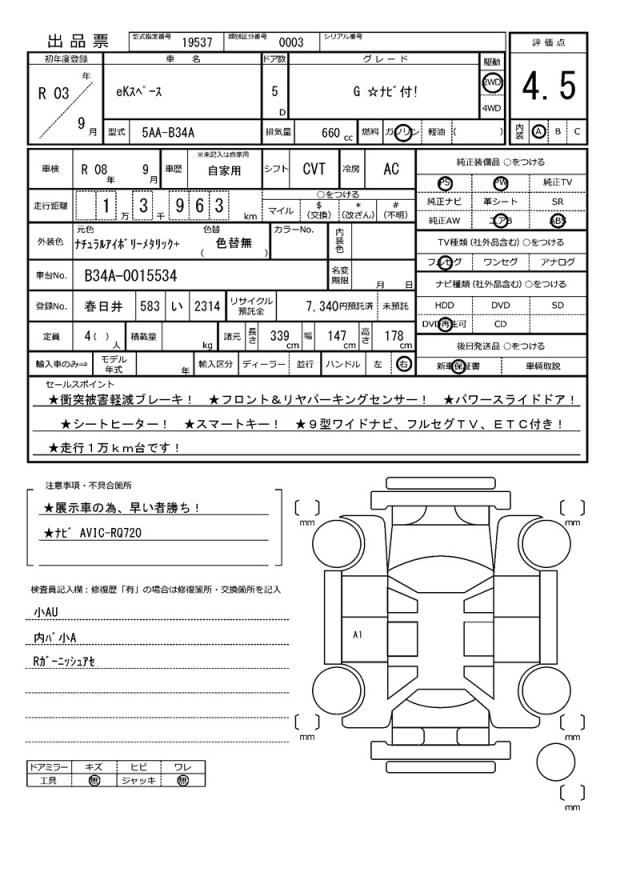 出品票 型式指定番号 19537 類別区分番号 0003 シリアル番号
初年度登録 車名 ドア数 グレード 駆動 評価点
R 03 年 9 月 eKｽﾍﾟｰｽ 5 D G ☆ﾅﾋﾞ付! 2WD 4WD 4.5
型式 5AA-B34A 排気量 660 cc 燃料 ガソリン 軽油 ( ) 内装 A B C
車検 R 08 年 9 月 車歴 ※未記入は自家用 自家用 シフト CVT 冷房 AC
走行距離 1 万 3 千 9 6 3 km ○をつける マイル $ (交換) * (改ざん) # (不明)
外装色 元色 ﾅﾁｭﾗﾙｱｲﾎﾞﾘｰﾒﾀﾘｯｸ+ 色替 ( 色替無 ) カラーNo. 内装色
車台No. B34A-0015534 名変期限 月 日
登録No. 春日井 583 い 2314 リサイクル預託金 7,340円預託済 未預託
定員 4( ) 人 積載量 kg 諸元 長さ 339 cm 幅 147 cm 高さ 178 cm
輸入車のみ⇒ モデル年式 年 輸入区分 ディーラー 並行 ハンドル 左 右
純正装備品 ○をつける
PS PW 純正TV
純正ナビ 革シート SR
純正AW エアB ABS
TV種類 (社外品含む) ○をつける
フルセグ ワンセグ アナログ
ナビ種類 (社外品含む) ○をつける
HDD DVD SD
DVD再生可 CD
後日発送品 ○をつける
新車保証書 車輌取説
セールスポイント
★衝突被害軽減ブレーキ！ ★フロント＆リヤパーキングセンサー！ ★パワースライドドア！
★シートヒーター！ ★スマートキー！ ★９型ワイドナビ、フルセグＴＶ、ＥＴＣ付き！
★走行１万ｋｍ台です！
注意事項・不具合箇所
★展示車の為、早い者勝ち！
★ﾅﾋﾞ AVIC-RQ720
検査員記入欄：修復歴「有」の場合は修復箇所・交換箇所を記入
小AU
内ﾊﾞ小A
Rｶﾞｰﾆｯｼｭｱｾ
ドアミラー キズ ヒビ ワレ
工具 無 ジャッキ 無
[ ] mm
[ ] mm
A1
[ ] mm
[ ] mm
[ ] mm